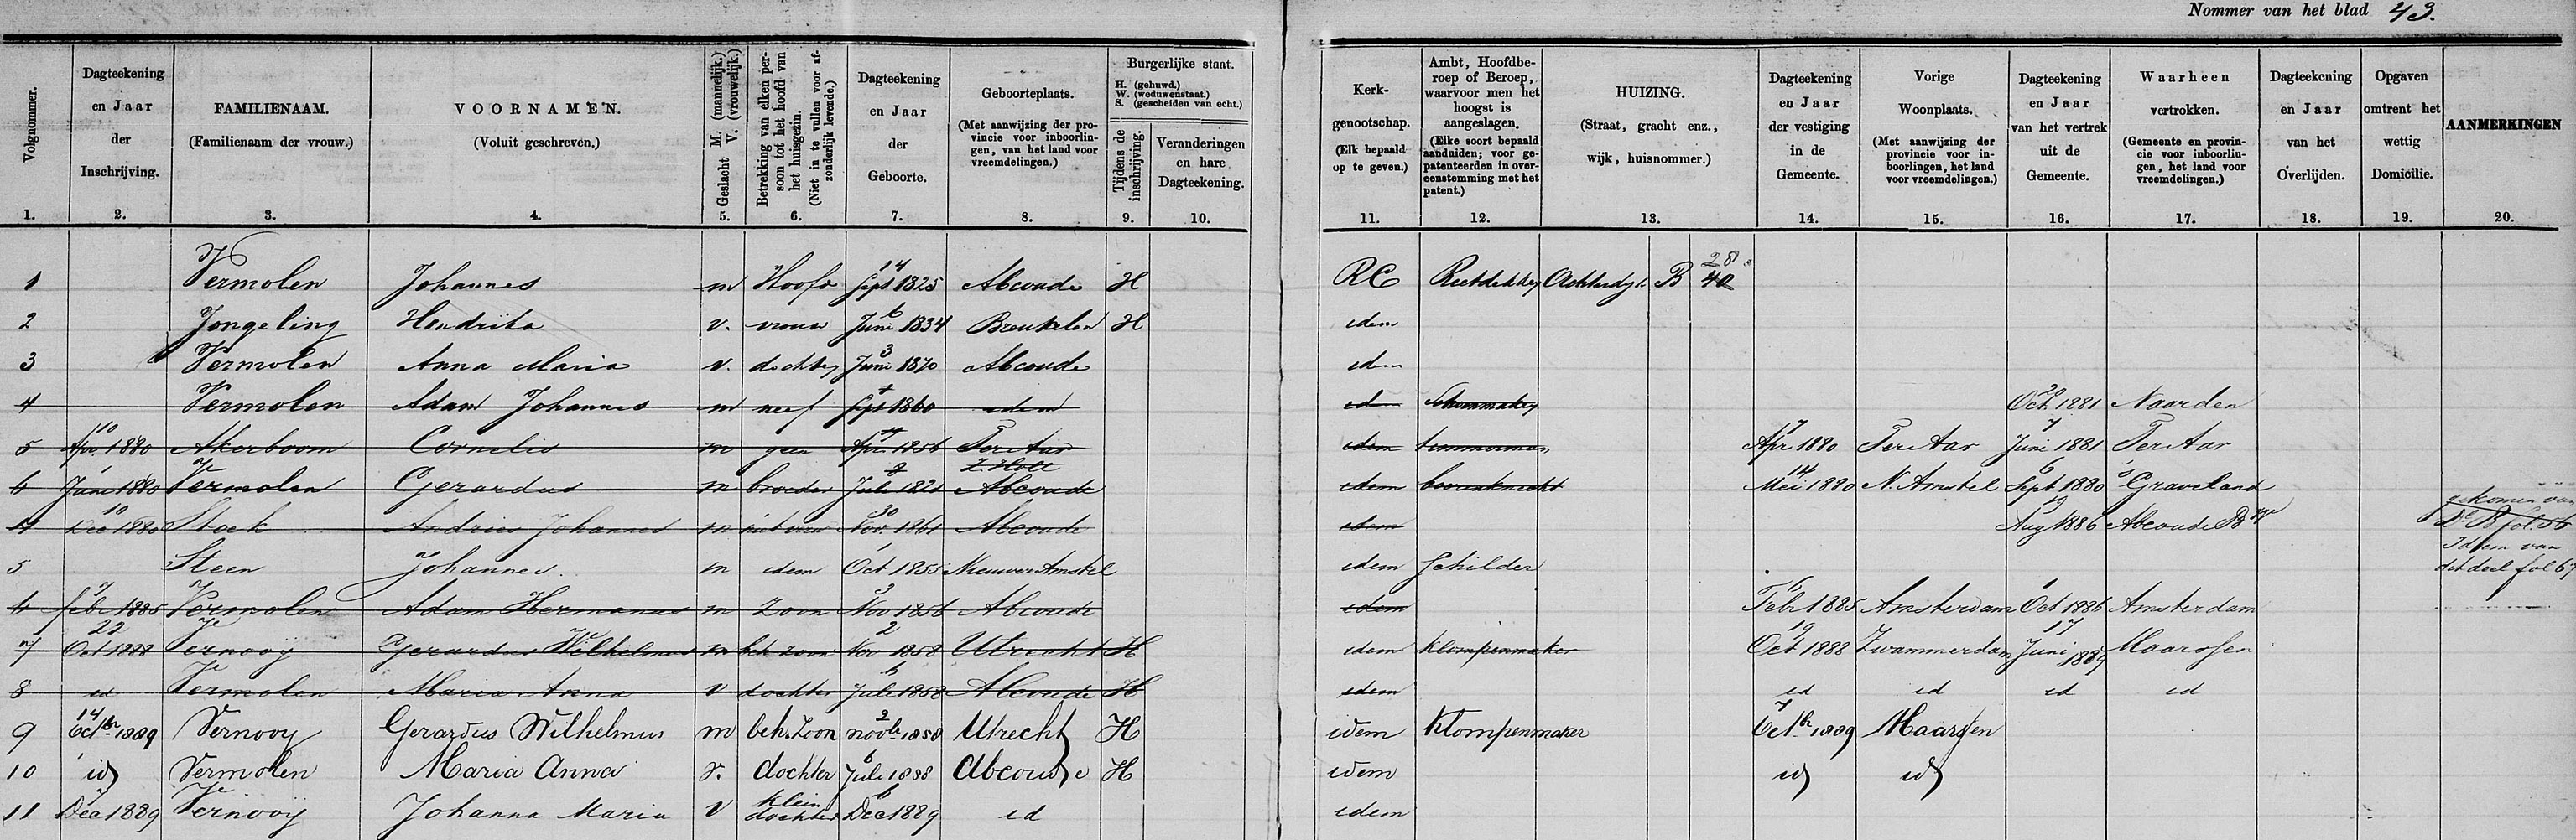 Nommer van het blad 43.
Volgnommer. 1.
Dagteekening en Jaar der Inschrijving. 2.
FAMILIENAAM. (Familienaam der vrouw.) 3.
VOORNAMEN. (Voluit geschreven.) 4.
Geslacht M. (mannelijk.) V. (vrouwelijk.) 5.
Betrekking van elken persoon tot het hoofd van het huisgezin. (Niet in te vullen voor afzonderlijk levende.) 6.
Dagteekening en Jaar der Geboorte. 7.
Geboorteplaats. (Met aanwijzing der provincie voor inboorlingen, van het land voor vreemdelingen.) 8.
Burgerlijke staat. H. (gehuwd.) W. (weduwenstaat.) S. (gescheiden van echt.)
Tijdens de inschrijving. 9.
Veranderingen en hare Dagteekening. 10.
Kerkgenootschap. (Elk bepaald op te geven.) 11.
Ambt, Hoofdberoep of Beroep, waarvoor men het hoogst is aangeslagen. (Elke soort bepaald aanduiden; voor gepatenteerden in overeenstemming met het patent.) 12.
HUIZING. (Straat, gracht enz., wijk, huisnommer.) 13.
Dagteekening en Jaar der vestiging in de Gemeente. 14.
Vorige Woonplaats. (Met aanwijzing der provincie voor inboorlingen, het land voor vreemdelingen.) 15.
Dagteekening en Jaar van het vertrek uit de Gemeente. 16.
Waarheen vertrokken. (Gemeente en provincie voor inboorlingen, het land voor vreemdelingen.) 17.
Dagteekening en Jaar van het Overlijden. 18.
Opgaven omtrent het wettig Domicilie. 19.
AANMERKINGEN 20.
1 Vermolen Johannes m Hoofd 14 Sept 1825 Abcoude H RC Rietdekker Achterdijk B 40 28
2 Jongeling Hendrika v. vrouw 6 Juni 1834 Breukelen H idem
3 Vermolen Anna Maria v. dochter 3 Juni 1870 Abcoude idem
4 Vermolen Adam Johannes m neef Sept 1860 idem id Schoenmaker 20 Oct. 1881 Naarden
5 10 Apr. 1880 Akerboom Cornelis m geen Apr. 1856 Ter Aar Z. Holl idem timmerman 7 Apr 1880 Ter Aar 7 Juni 1881 Ter Aar
6 1 Juni 1880 Vermolen Gerardus m broeder Juli 1821 Abcoude idem bovenknecht 14 Mei 1880 N. Amstel 6 Sept 1880 's Graveland
4 10 Dec 1880 Stock Andries Johannes m 30 Nov. 1861 Abcoude idem 19 Aug 1886 Abcoude gekomen van Dl B fol. 56
5 Steen Johannes. m idem 1 Oct 1855 Nieuwer Amstel idem Schilder Idem van dit deel fol 67
4 7 Febr 1885 Vermolen Adam Hermanus m zoon 3 Nov 1856 Abcoude idem 6 Febr 1885 Amsterdam 1 Oct 1886 Amsterdam
7 22 Oct 1888 Vernooy Gerardus Wilhelmus m beh. zoon 2 Nov 1858 Utrecht H idem klompenmaker 19 Oct 1888 Zwammerdam 17 Juni 1889 Maarssen
8 id Vermolen Maria Anna v dochter 6 Juli 1858 Abcoude H idem id id id id
9 14 Octbr 1889 Vernooy Gerardus Wilhelmus m beh. Zoon 2 novbr 1858 Utrecht H idem Klompenmaker 7 Octbr 1889 Maarssen
10 id Vermolen Maria Anna v. dochter 6 Juli 1858 Abcoude H idem id id
11 Dec 1889 Vernooij Johanna Maria v klein dochter 6 Dec 1889 id idem